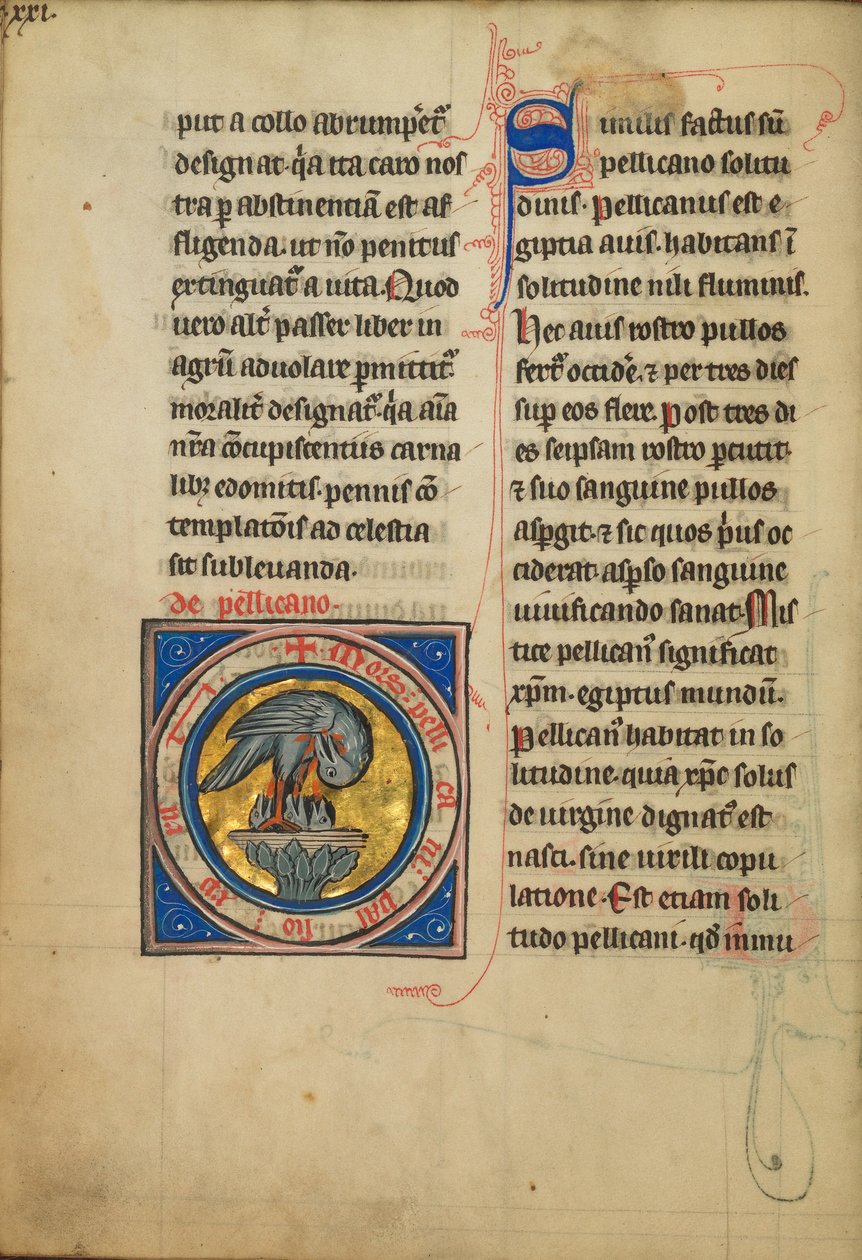 xxi.
put a collo abrumpet᷑
designat. q̇a ita caro nos
tra ꝑ abstinentiā est af
fligenda. ut nō penitus
extinguat᷑ a uita. Quod
uero alt᷑ passer liber in
agrū aduolare ꝑmittit᷑.
moralit᷑ designat᷑. q̇a aīa
nr̄a ɔ̄cupiscentiis carna
libꝫ edomitis. pennis cō
templatōis ad celestia
sit subleuanda.
de pellicano.
+ Mors: pelli ca ni: pas sio: xp̄i na
Similis factus sū
pellicano solitu
dinis. Pellicanus est e
giptia auis. habitans ī
solitudine nili fluminis.
Hec auis rostro pullos
fert᷑ occidē. ⁊ per tres dies
suꝑ eos flere. Post tres di
es seipsam rostro ꝑcutit.
⁊ suo sanguine pullos
asꝑgit. ⁊ sic quos p̍us oc
ciderat. asꝑso sanguine
uiuificando sanat. Mis
tice pellican᷒ significat
xp̄m. egiptus mundū.
Pellican᷒ habitat in so
litudine. quia xp̄c solus
de uirgine dignat᷒ est
nasci. sine uirili copu
latione. Est etiam soli
tudo pellicani. qd̄ inmu